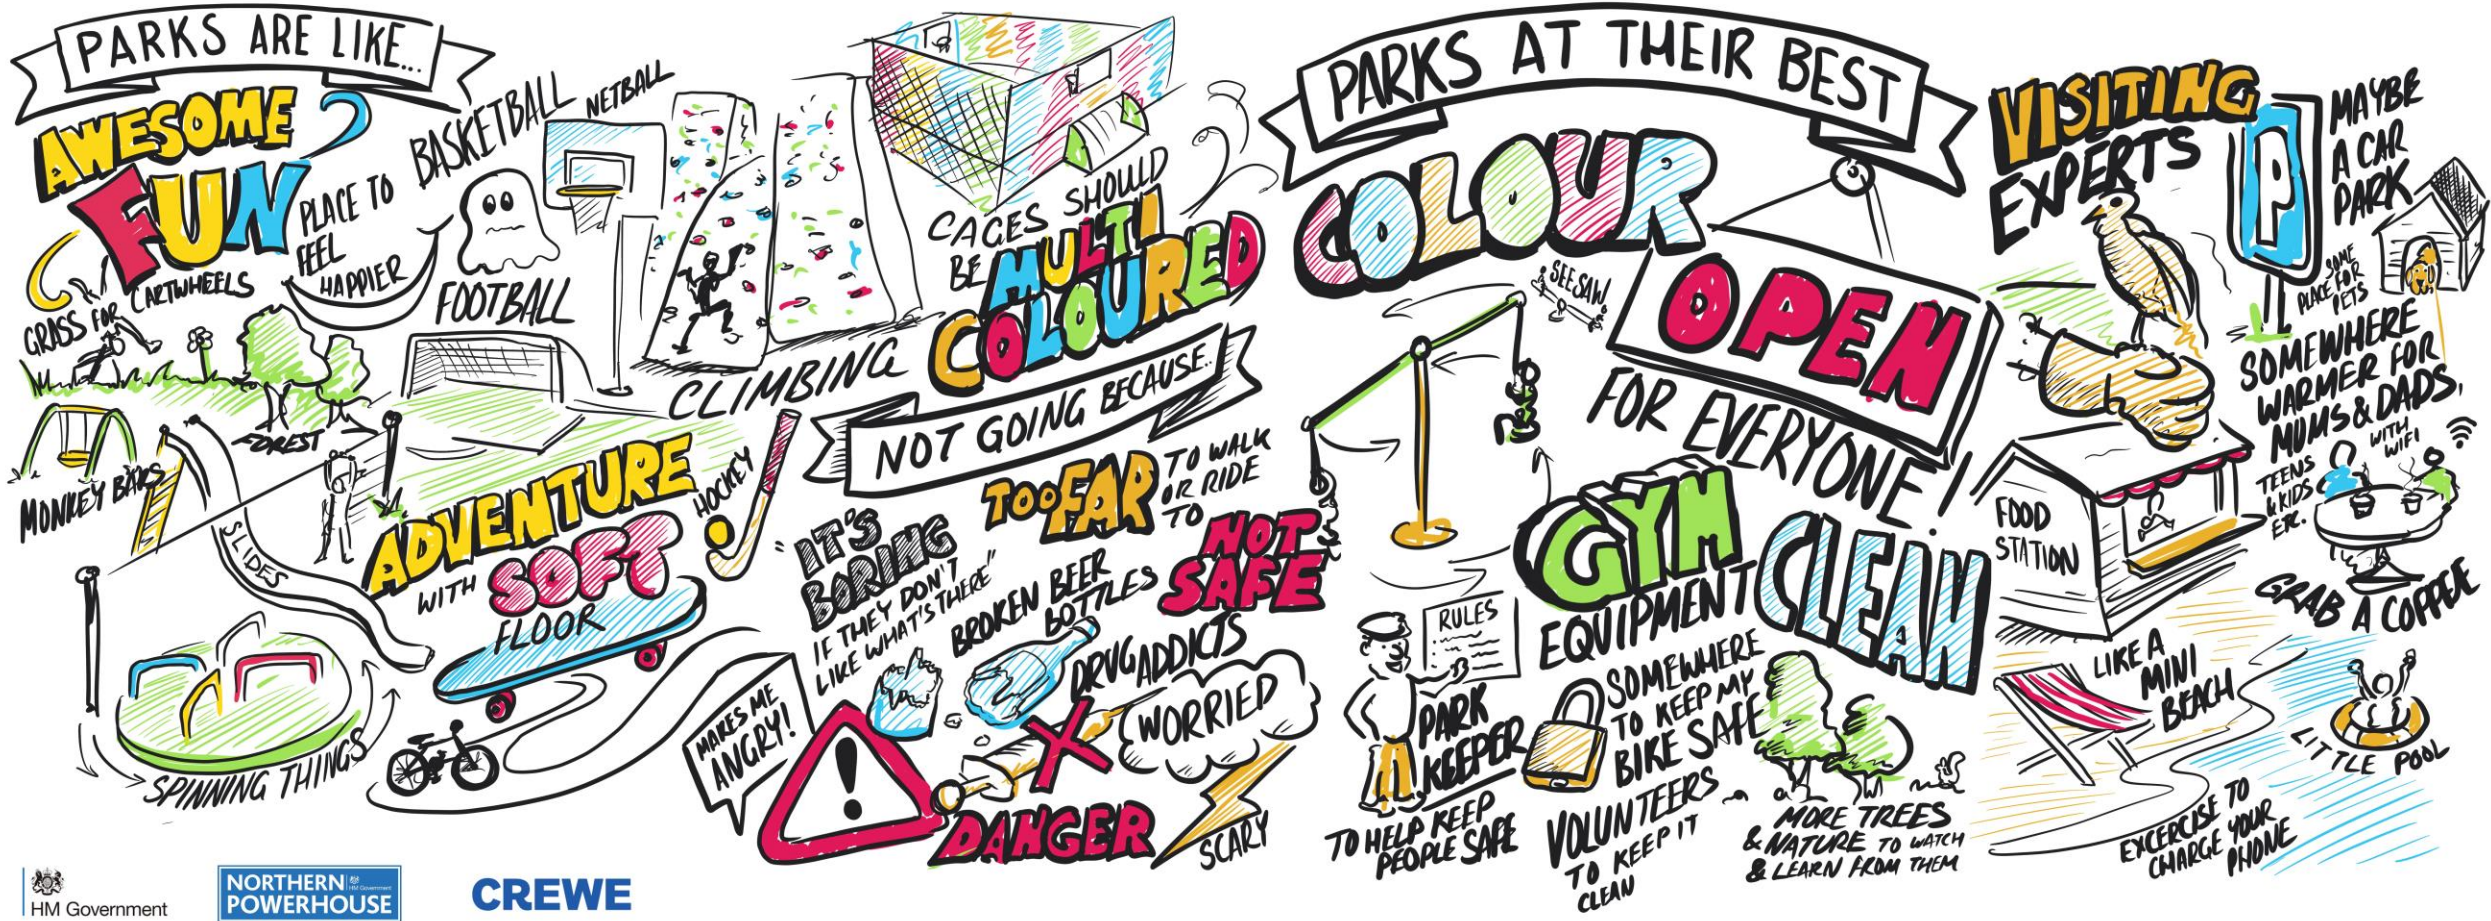 PARKS ARE LIKE...
AWESOME
FUN
PLACE TO
FEEL
HAPPIER
GRASS FOR
CARTWHEELS
BASKETBALL
NETBALL
FOOTBALL
CLIMBING
FOREST
MONKEY BARS
SLIDES
ADVENTURE
WITH SOFT
FLOOR
HOCKEY
SPINNING THINGS
CAGES SHOULD
BE MULTI
COLOURED
NOT GOING BECAUSE..
TOO FAR
TO WALK
OR RIDE
TO
"IT'S
BORING
IF THEY DON'T
LIKE WHAT'S THERE"
NOT
SAFE
BROKEN BEER
BOTTLES
DRUG ADDICTS
MAKES ME
ANGRY!
!
WORRIED
DANGER
SCARY
PARKS AT THEIR BEST
COLOUR
SEESAW
OPEN
FOR EVERYONE!
GYM
EQUIPMENT
CLEAN
RULES
PARK
KEEPER
TO HELP KEEP
PEOPLE SAFE
SOMEWHERE
TO KEEP MY
BIKE SAFE
VOLUNTEERS
TO KEEP IT
CLEAN
MORE TREES
& NATURE TO WATCH
& LEARN FROM THEM
VISITING
EXPERTS
P
MAYBE
A CAR
PARK
SOME
PLACE FOR
PETS
SOMEWHERE
WARMER FOR
MUMS & DADS,
TEENS
& KIDS
ETC.
WITH
WIFI
FOOD
STATION
GRAB A COFFEE
LIKE A
MINI
BEACH
LITTLE POOL
EXCERCISE TO
CHARGE YOUR
PHONE
HM Government
NORTHERN
POWERHOUSE
HM Government
CREWE